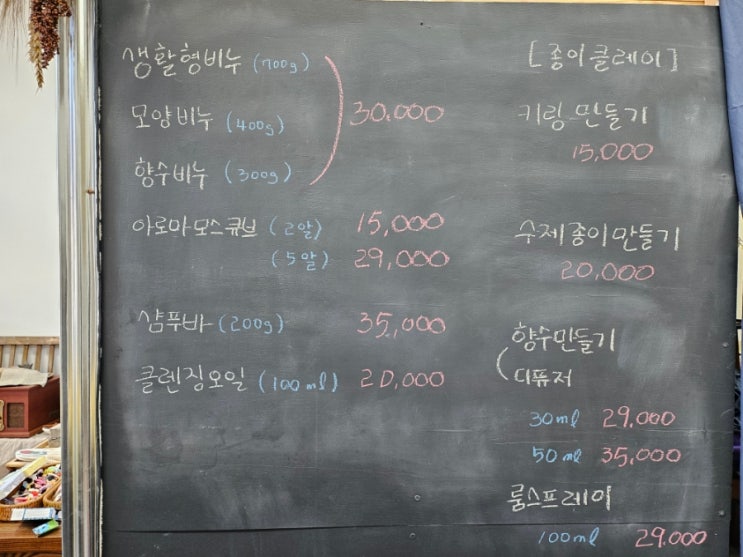 생활형비누 (700g)
모양비누 (400g)
향수비누 (300g)
30.000
아로마모스큐브 (2알) 15,000
(5알) 29,000
샴푸바 (200g) 35,000
클렌징오일 (100ml) 20,000
[종이클레이]
키링만들기
15,000
수제종이만들기
20,000
향수만들기
디퓨저
30ml 29.000
50ml 35,000
룸스프레이
100ml 29.000